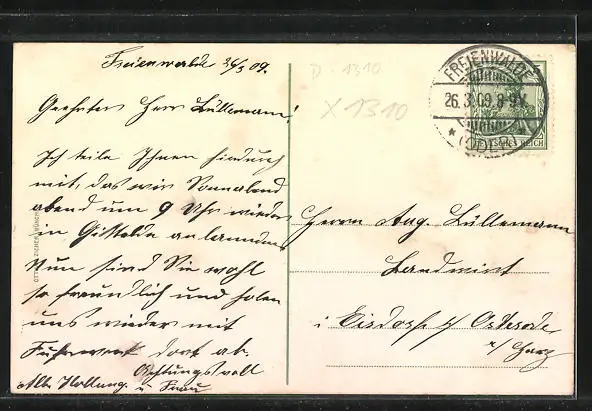 Freienwalde 26/3 09.
Geehrter Herr Lüllemann!
Ich teile Ihnen hierdurch
mit, das wir Sonnabend
abend um 9 Uhr wieder
in Gittelde anlannden.
Nun sind Sie wohl
so freundlich und holen
uns wieder mit
Fuhrwerk dort ab.
Achtungsvoll
u Frau
D. 1310
X 1310
FREIENWALDE
26.3.09.8-9V.
* (ODER) *
DEUTSCHES REICH
Herrn Aug. Lüllemann
Landwirt
i Eisdorf b/ Osterode
a/ Harz